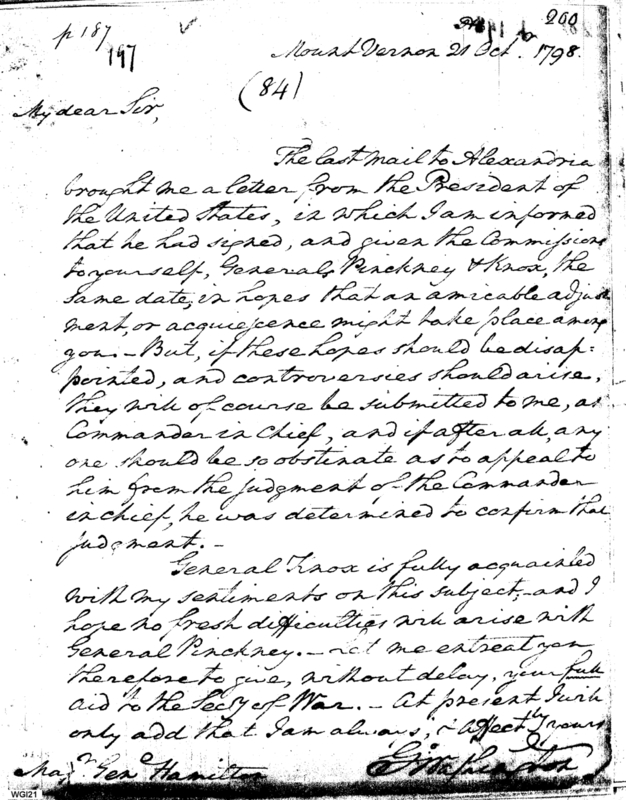 p 187
197
200
Mount Vernon 21 Oct. 1798.
(84)
My dear Sir,
The last mail to Alexandria
brought me a letter from the President of
the United States, in which I am informed
that he had signed, and given the Commissions
to yourself, Generals Pinckney & Knox, the
same date, in hopes that an amicable adjust
ment, or acquiescence might take place among
you. – But, if these hopes should be disap=
pointed, and controversies should arise,
they will of course be submitted to me, as
Commander in chief, and if after all, any
one should be so obstinate as to appeal to
him from the judgment of the Commander
in chief, he was determined to confirm that
judgment. –
General Knox is fully acquainted
with my sentiments on this subject, – and I
hope no fresh difficulties will arise with
General Pinckney. – Let me entreat you
therefore to give, without delay, your full
aid to the Secy of War. – At present I will
only add that I am always, & Affectly yours
Go: Washington
Majr Genl Hamilton
WGI21